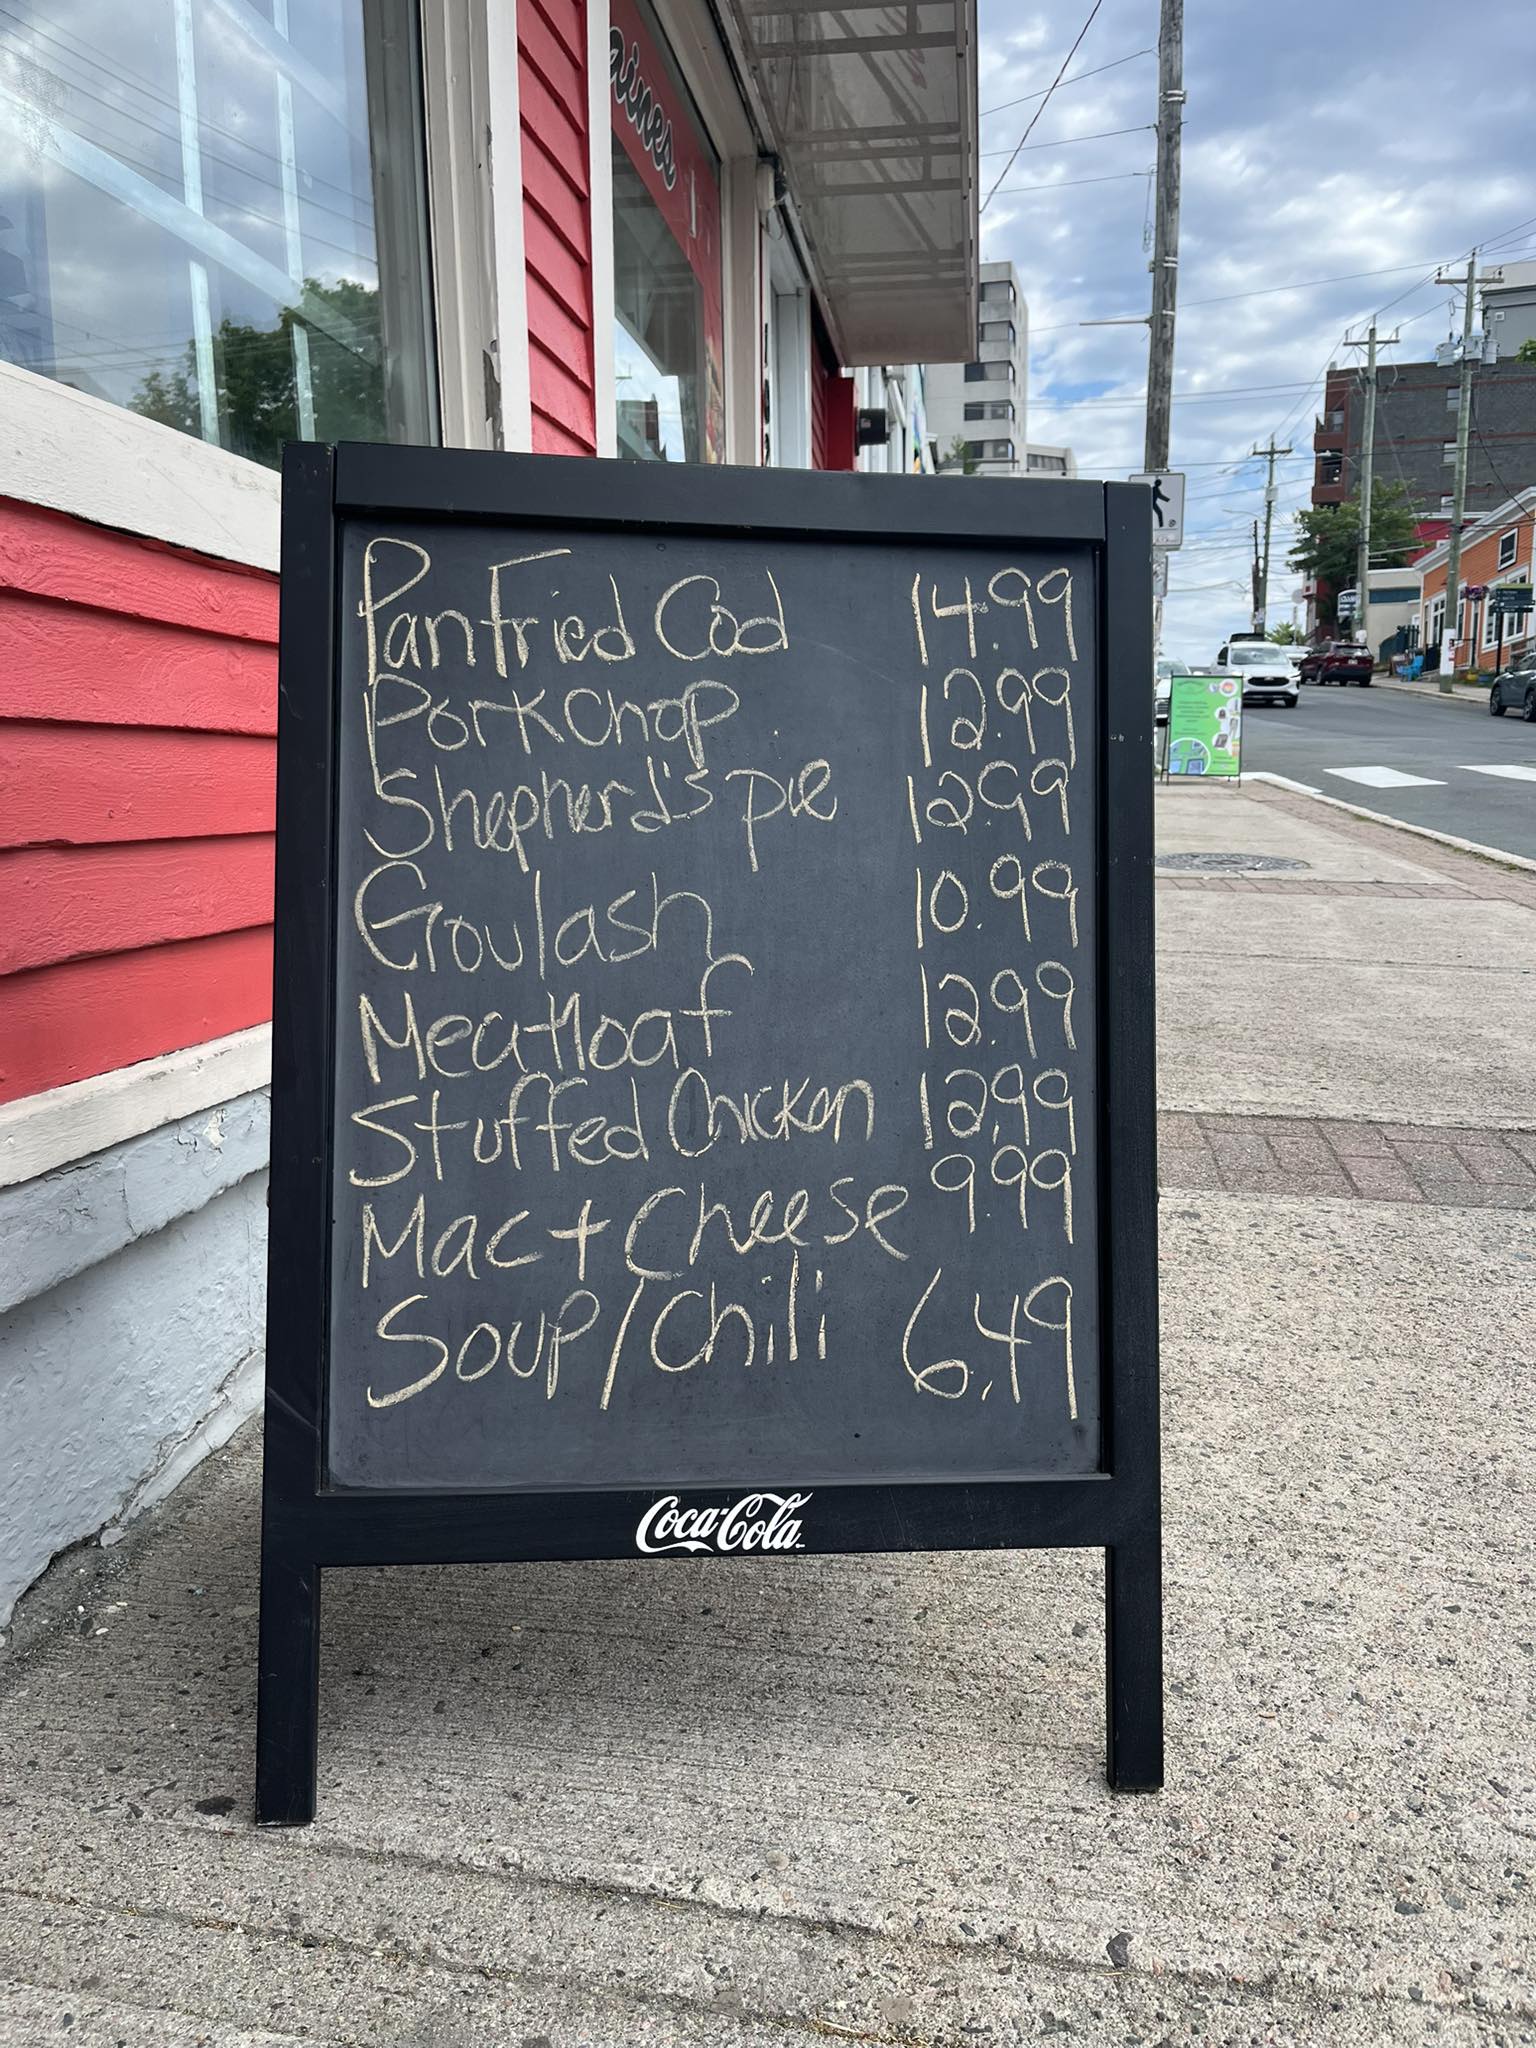 aines
Pan Fried Cod 14.99
Pork Chop 12.99
Shepherd's pie 12.99
Goulash 10.99
Meatloaf 12.99
Stuffed Chicken 12.99
Mac + Cheese 9.99
Soup/Chili 6.49
Coca-Cola